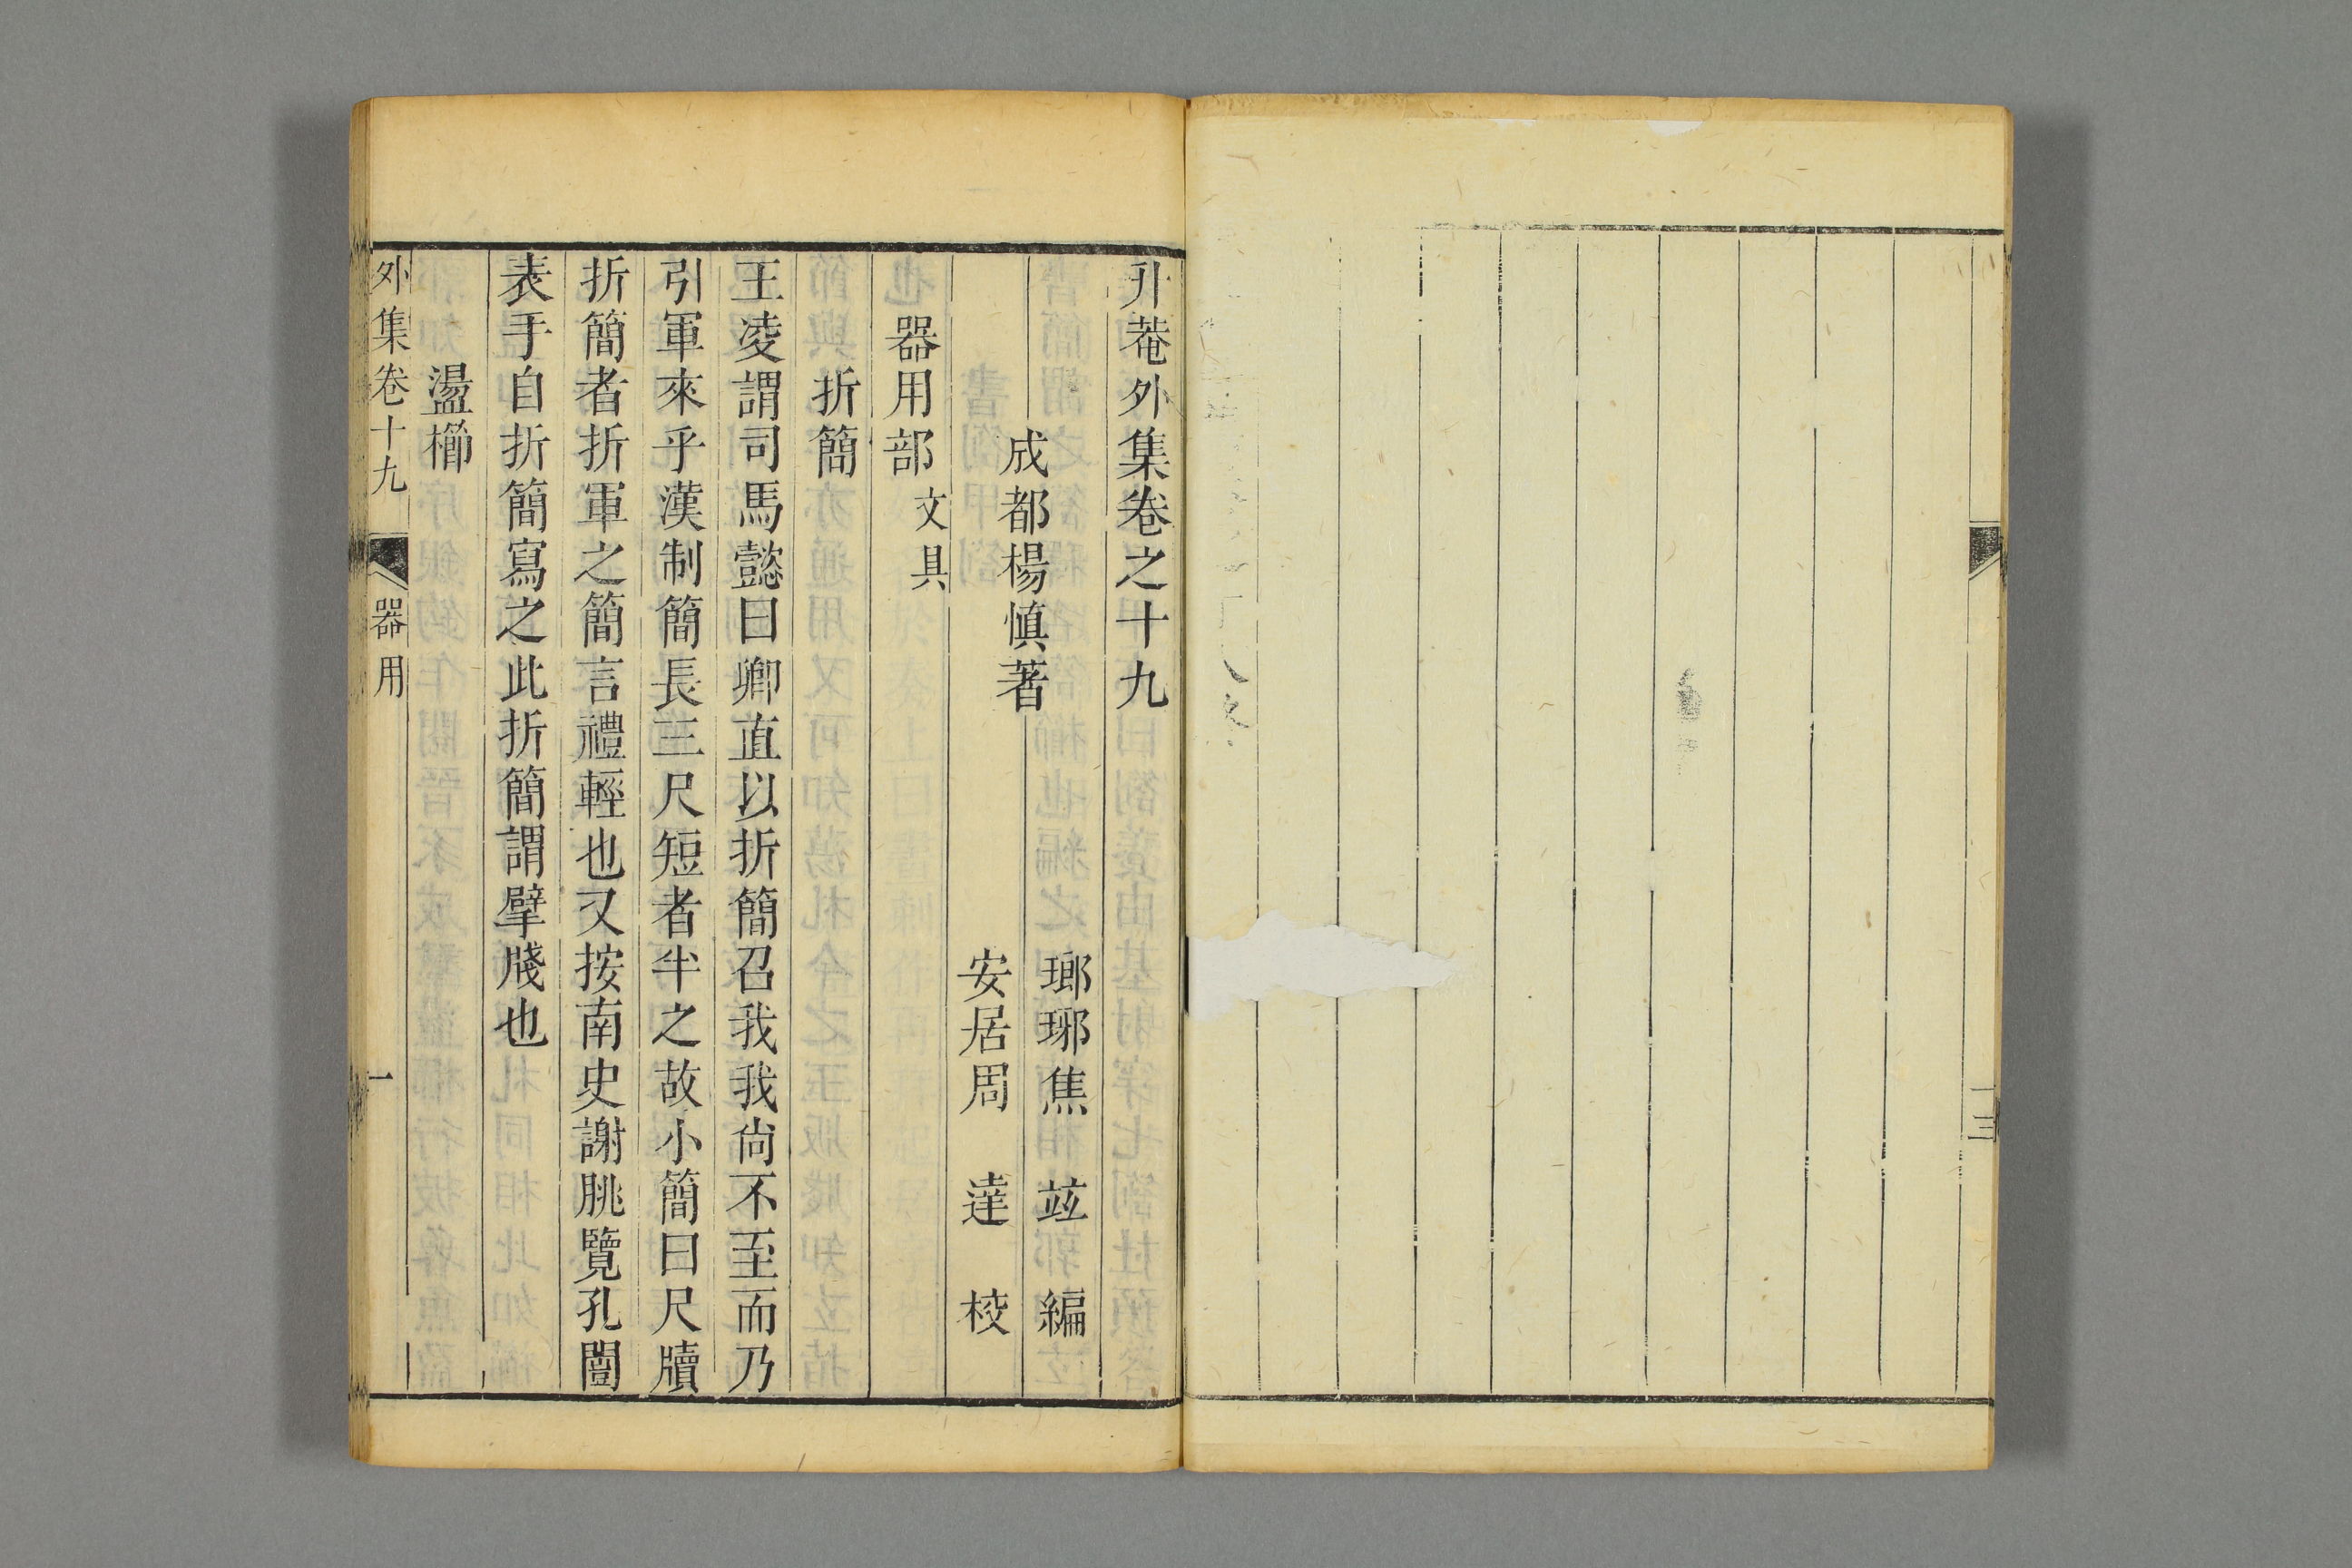 升菴外集卷之十九
成都楊慎著
瑯琊焦竑編
安居周達校
器用部文具
折簡
王凌謂司馬懿曰卿直以折簡召我我尙不至而乃
引軍來乎漢制簡長三尺短者半之故小簡曰尺牘
折簡者折軍之簡言禮輕也又按南史謝朓覽孔闓
表手自折簡寫之此折簡謂擘牋也
盪櫛
外集卷十九
器用
一